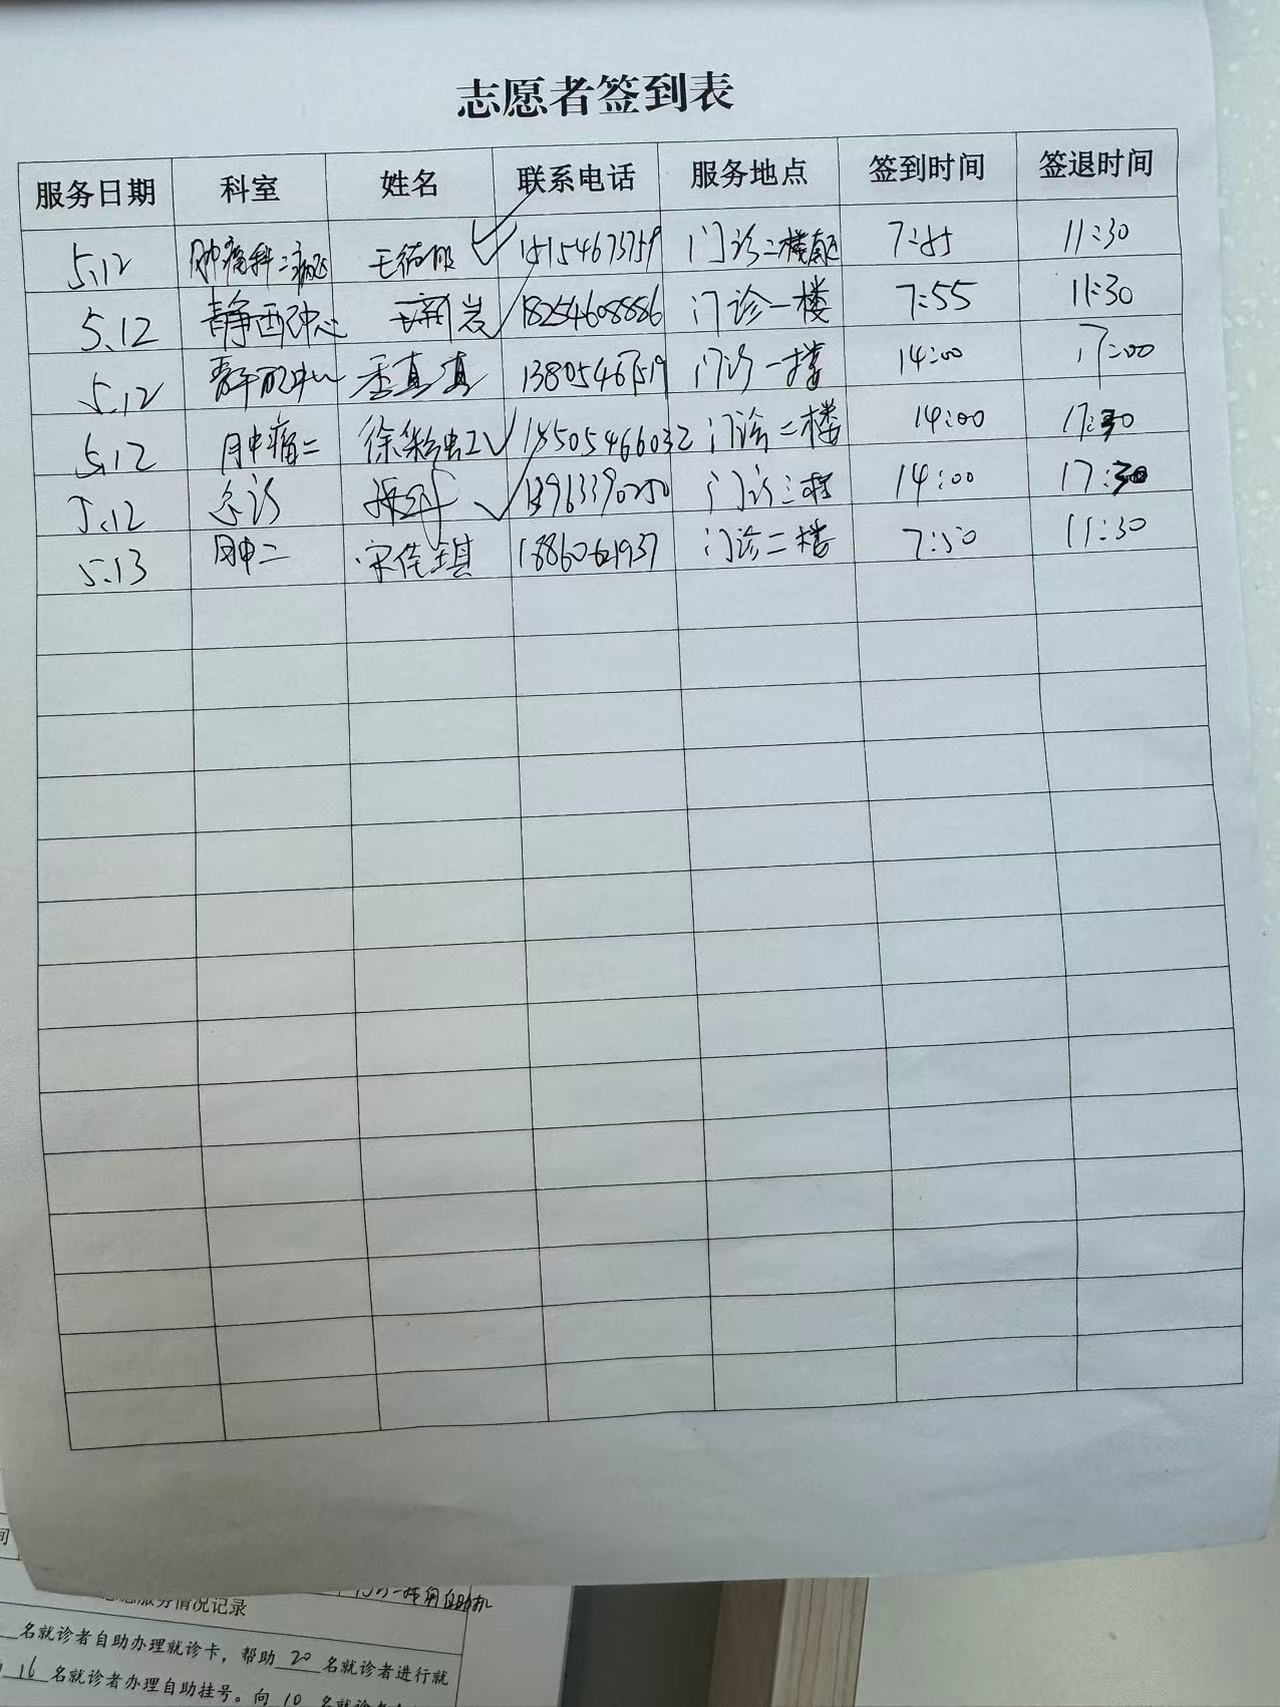 志愿者签到表
服务日期 科室 姓名 联系电话 服务地点 签到时间 签退时间
5.12 肿瘤科二病区 15154673759 门诊二楼南区 7:45 11:30
5.12 静配中心 18254608886 门诊一楼 7:55 11:30
5.12 静配中心 门诊一楼 14:00 17:00
5.12 肿瘤二 徐彩虹 18505466032 门诊二楼 14:00 17:30
5.12 急诊 13963390250 门诊三楼 14:00 17:30
5.13 肿二 宋佳琪 门诊二楼 7:50 11:30
间
服务情况记录
名就诊者自助办理就诊卡，帮助 20 名就诊者进行就
16 名就诊者办理自助挂号。向 10 名就诊者